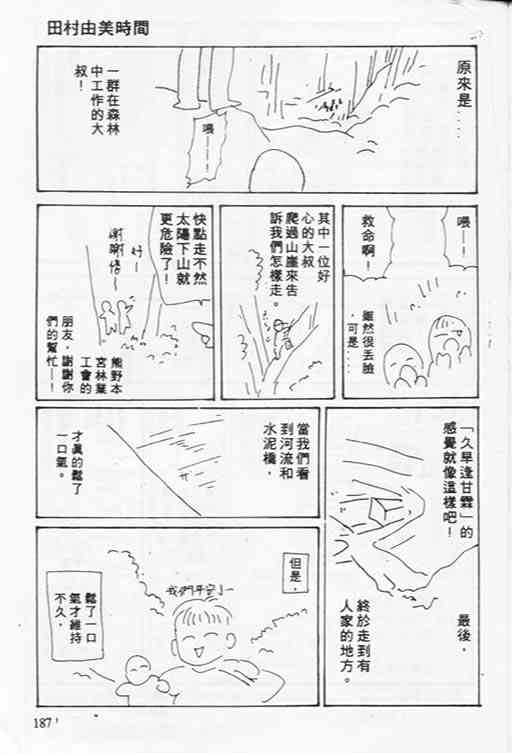 田村由美時間
原來是....
喂——
一群在森林
中工作的大
叔！
喂——！
救命啊！
雖然很丟臉
，可是...
其中一位好
心的大叔
爬過山崖來告
訴我們怎樣走。
快點走不然
太陽下山就
更危險了！
好—
謝謝你—
熊野本
宮林業
工會的
朋友，謝謝你
們的幫忙——！
「久旱逢甘霖」的
感覺就像這樣吧！
最後，
終於走到有
人家的地方。
當我們看
到河流和
水泥橋，
才真的鬆了
一口氣。
但是，
我們平安了—
鬆了一口
氣才維持
不久，
187